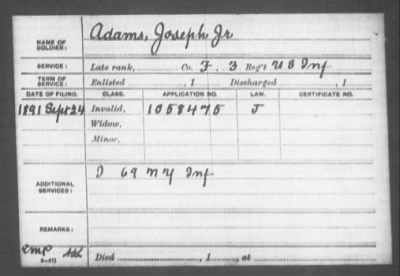 NAME OF SOLDIER: Adams, Joseph Jr
SERVICE: Late rank, Co. F, 3 Reg't U S Inf
TERM OF SERVICE: Enlisted , 1 Discharged , 1
DATE OF FILING. CLASS. APPLICATION NO. LAW. CERTIFICATE NO.
1891 Sept 24 Invalid, 1058475 J
Widow,
Minor,
ADDITIONAL SERVICES: I 69 N Y Inf
REMARKS:
Died , 1 , at